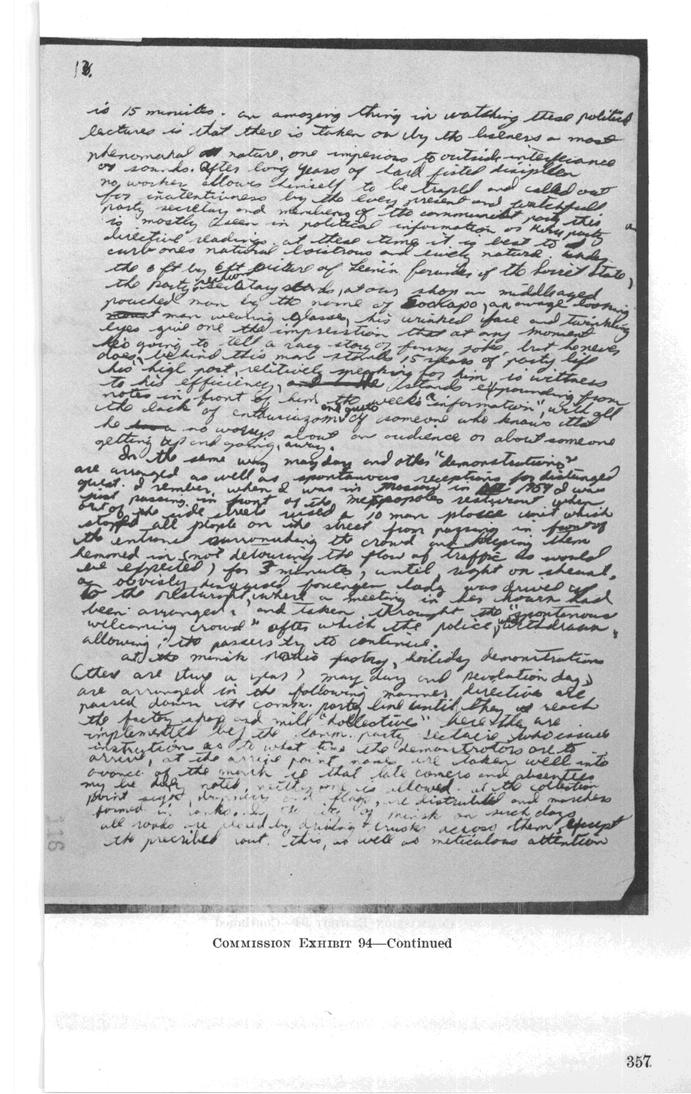 13.
is 15 minuites. an amazing thing in watching these political
lectures is that there is taken on by the liseners a most
phenomonal nature, one impervious to outside interfiance
or sounds. After long years of hard fisted disiplen
no worker allows himself to be traped and called out
for inatentivness by the every present and watchfull
party secretary and members of the communist party this
is mostly seen in political information or party
directive readings, at these time it is best to
curb ones natural boistrous and lively nature. Under
the 6 ft by 6 ft picture of Lenin founder of the Soviet State,
the Party section secretary stands, at our shop an middleaged
pouched man by the name of an average looking
man wearing glasse, his wrinked face and twinkling
eyes give one the impression that at any moment
he's going to tell a racy story or funny joke but he never
does, behind this man stands 15 years of party life
his high post, relitively speaking for him, is witness
to his efficiency, stands expounding from
notes in front of him the weeks "information", with all
the lack of enthusizam and gusto of someone who knows that
he no worrys about an audience or about someone
getting up and going, away.
In the same way mayday and other "demonstrations"
are arranged as well as spontanous receptions for distinged
guest. I rember, when I was in Moscow in 1959 I was
just passing in front of the Metropoles restuarant when
out of the side streets 10 man unit which
stopped all people on the street from passing in front of
the entrance surronding the crowd and keeping them
hemmed in (not detouring the flow of traffic as would
be expected) for 3 minutes, until right on
an obvisly foreigen lady was drived up
to the resturant, where a meeting in her honor had
been arranged, and taken, throught the "spontenous
welcoming crowd" after which the police were withdrawn,
allowing the passers by to continue.
at the minsk radio factory, holiday demonstrations
(ther are two a year) may day and revolution day,
are arranged in the following manner, directives are
passed down the comm. party line until they reach
the factory shop and mill "kollectives" here they are
implemented by the comm. party who issues
instruction as to what time the demonstrators are to
arrive, at the arrive point names are taken well into
avance of the march so that late comers and absenties
my be duly noted, neither one is allowed. at the collection
point signs, and flags are distributed and marchers
formed in ranks. In the city of minsk on such days
all roads are closed by driving trucks across them, except
the prescribed rout. this, as well as meticulous attention
116
COMMISSION EXHIBIT 94—Continued
357